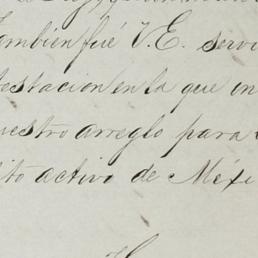 También fué V. E. servi
testacion en la que in
uestro arreglo para
ito activo de Méxi